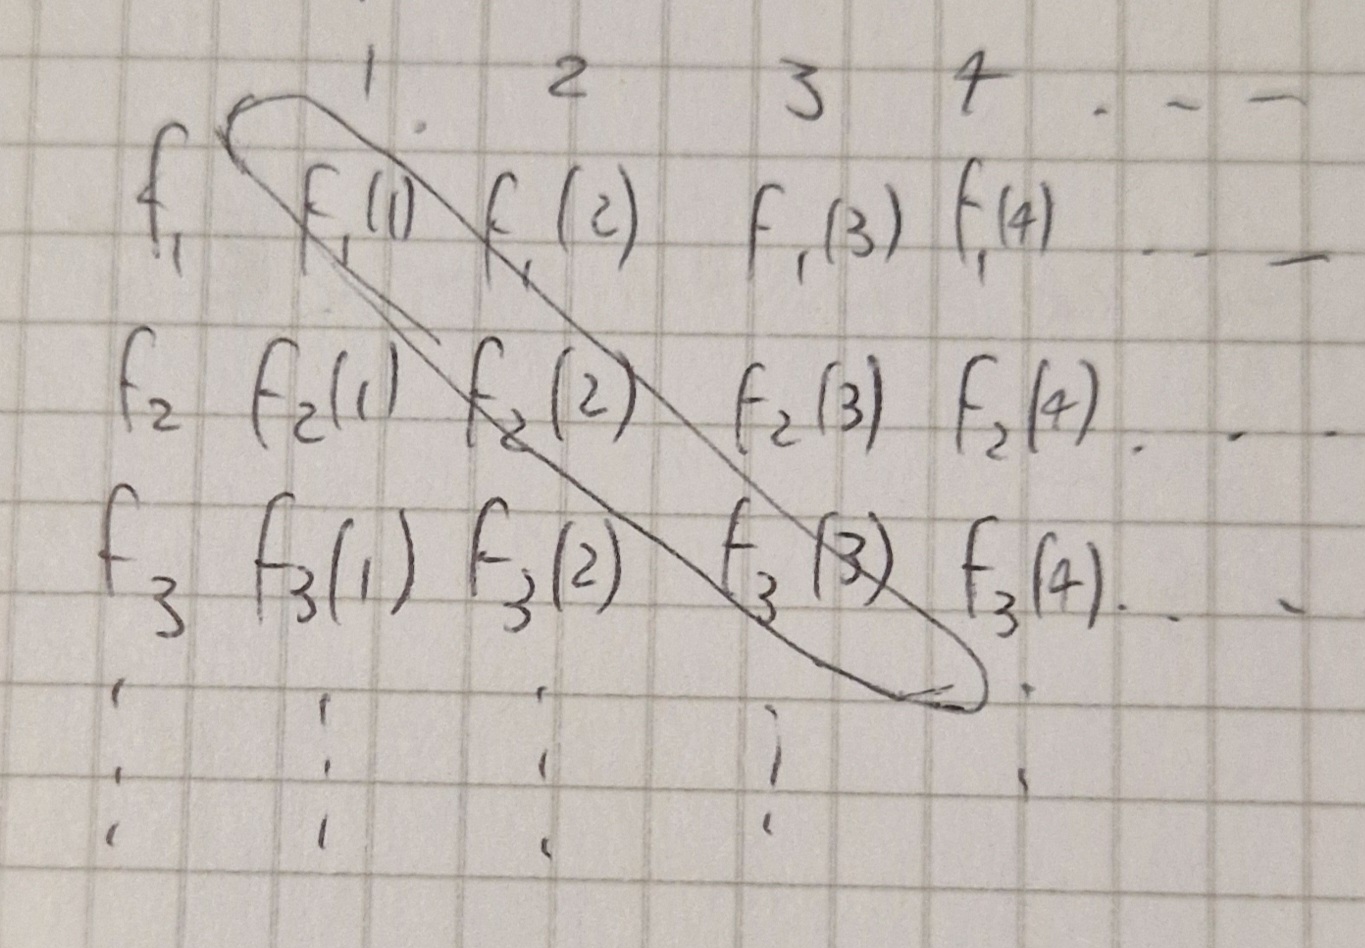 1 2 3 4 . - -
f₁ f₁(1) f₁(2) f₁(3) f₁(4) . . -
f₂ f₂(1) f₂(2) f₂(3) f₂(4) . . .
f₃ f₃(1) f₃(2) f₃(3) f₃(4) . . .
⋮ ⋮ ⋮ ⋮ ⋮